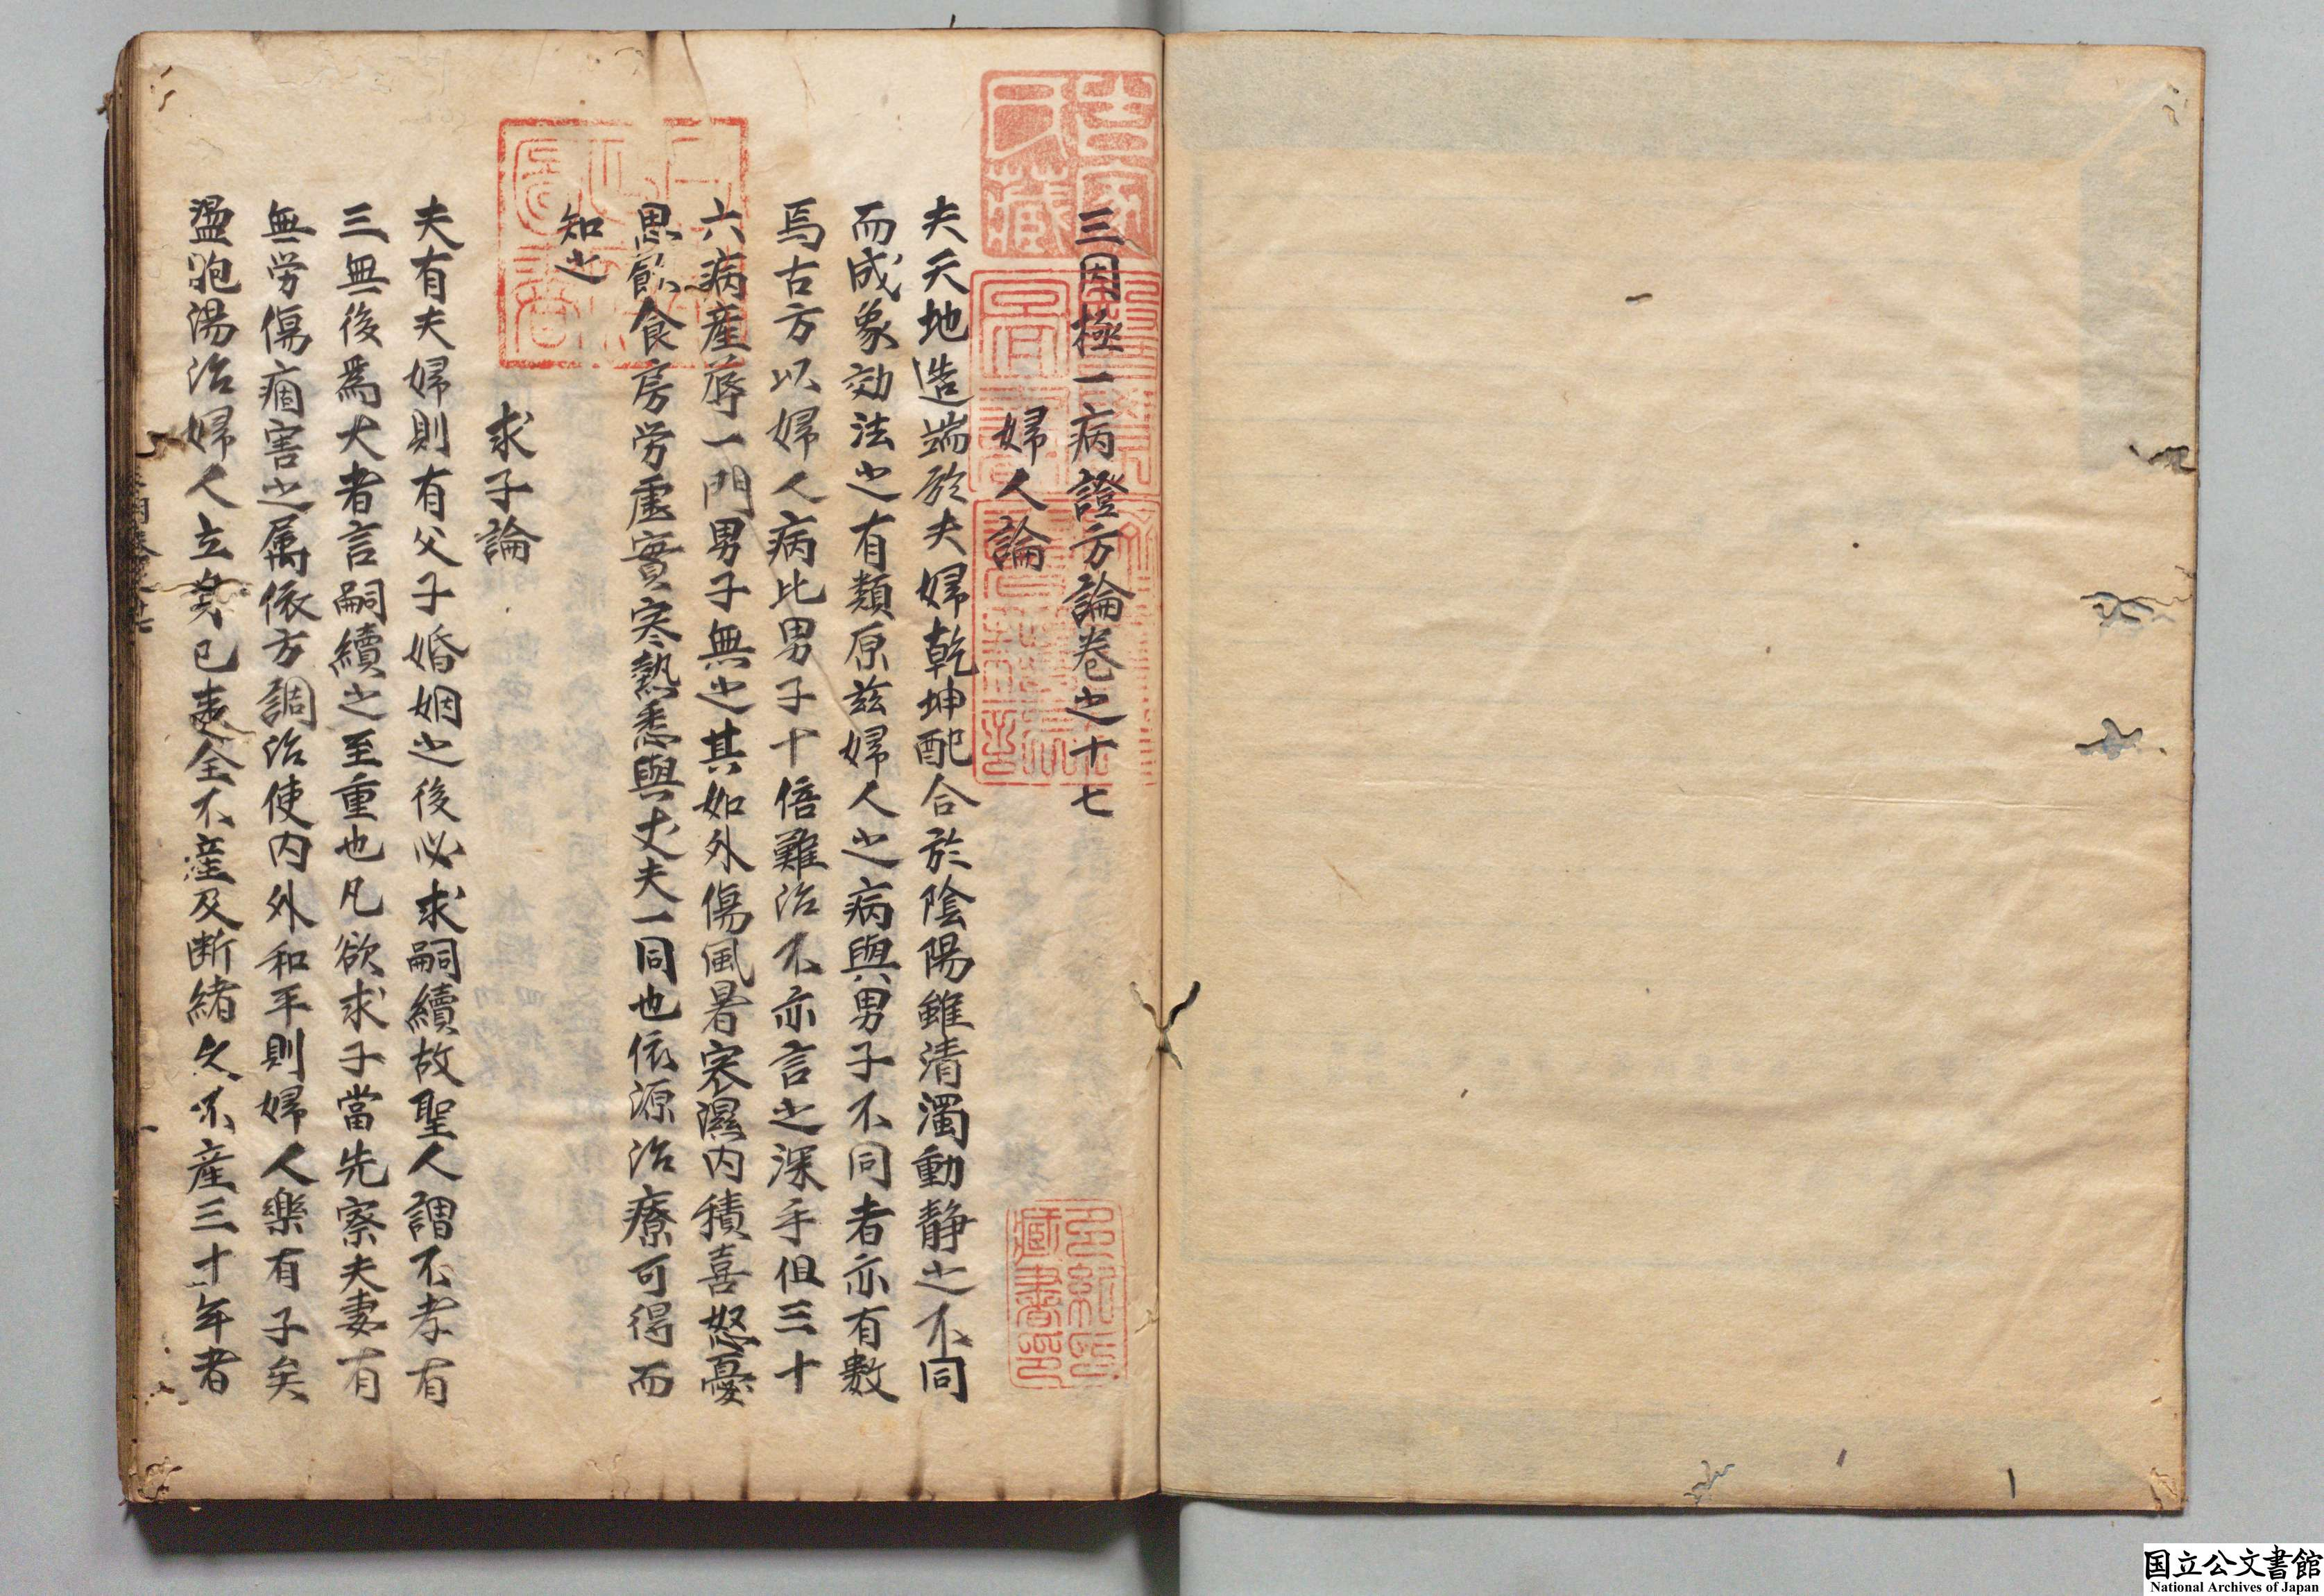 三因極一病證方論卷之十七
婦人論
夫天地造端於夫婦乾坤配合於陰陽雖清濁動靜之不同
而成象効法之有類原茲婦人之病與男子不同者亦有數
焉古方以婦人病比男子十倍難治不亦言之深乎但三十
六病產蓐一門男子無之其如外傷風暑寒濕内積喜怒憂
思飲食房労虛實寒熱悉與丈夫一同也依源治療可得而
知之
求子論
夫有夫婦則有父子婚姻之後必求嗣續故聖人謂不孝有
三無後爲大者言嗣續之至重也凡欲求子當先察夫妻有
無労傷痼害之属依方調治使内外和平則婦人樂有子矣
盪胞湯治婦人立身已來全不產及断緒久不產三十年者
国立公文書館
National Archives of Japan